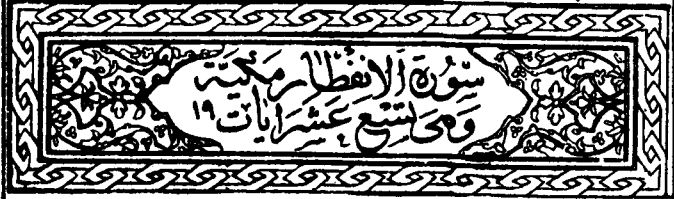 سُورَةُ الانفِطارِ مَكيّة
وَهيَ تِسْعَ عَشرَةَ آيَات ١٩